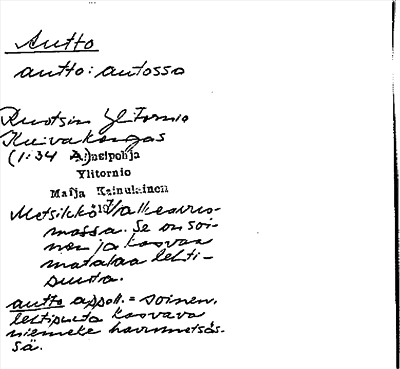 Autto
autto: autossa
Ruotsin Ylitornio
Kuivakangas
(1:34 A) Länsipohja
Ylitornio
Maija Kainulainen
Metsikkö 197 Valkeavuo-
massa. Se on soi-
nen ja kasvaa
matalaa lehti-
puuta.
autto appell. = soinen,
lehtipuuta kasvava
niemeke havumetsäs-
sä.